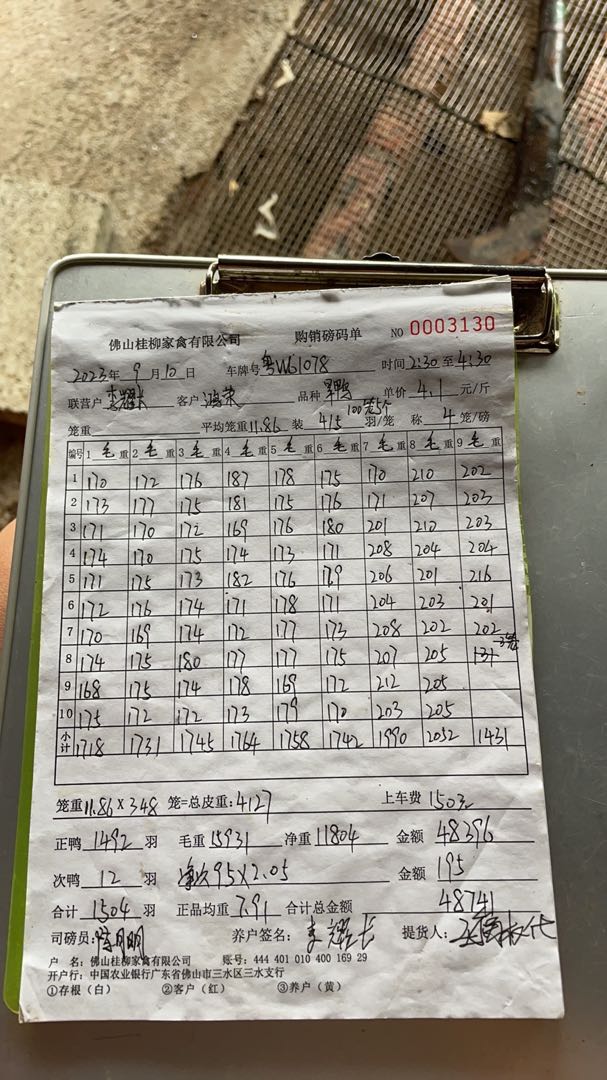 佛山桂柳家禽有限公司 购销磅码单 NO 0003130
2023年 9月 10日 车牌号粤W61078 时间2:30至4:30
联营户李耀长 客户鸿荣 品种 单价 4.1 元/斤
100笼5个
笼重 平均笼重11.86 装 4/5 羽/笼 称 4 笼/磅
编号 1 毛重 2 毛重 3 毛重 4 毛重 5 毛重 6 毛重 7 毛重 8 毛重 9 毛重
1 170 172 176 187 178 175 170 210 202
2 173 177 175 181 175 176 171 207 203
3 171 170 172 169 176 180 201 210 203
4 174 170 175 174 173 171 208 204 204
5 171 175 173 182 176 179 206 201 216
6 172 176 174 171 178 171 204 203 201
7 170 169 174 172 177 173 208 202 202
3笼
8 174 175 180 177 177 175 207 205 131
9 168 175 174 178 169 172 212 205
10 175 172 172 173 179 170 203 205
小计 1718 1731 1745 1764 1758 1742 1990 2052 1431
笼重11.86×348 笼=总皮重:4127 上车费 1503
正鸭 1492 羽 毛重15931 净重11804 金额 48396
次鸭 12 羽 95×2.05 金额 195
合计 1504 羽 正品均重 7.91 合计总金额 48741
司磅员: 养户签名: 李耀长 提货人:
户 名: 佛山桂柳家禽有限公司 账号: 444 401 010 400 169 29
开户行: 中国农业银行广东省佛山市三水区三水支行
①存根（白） ②客户（红） ③养户（黄）